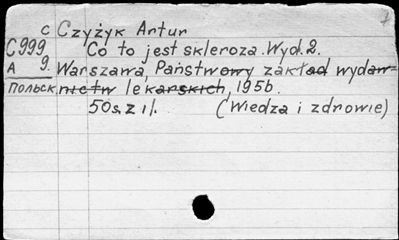 с Czyżyk Artur
C999 Co to jest skleroza. Wyd. 2.
A 9. Warszawa, Państwowy zakład wydaw-
польск. nictw lekarskich, 1956.
50 s. z il. (Wiedza i zdrowie)